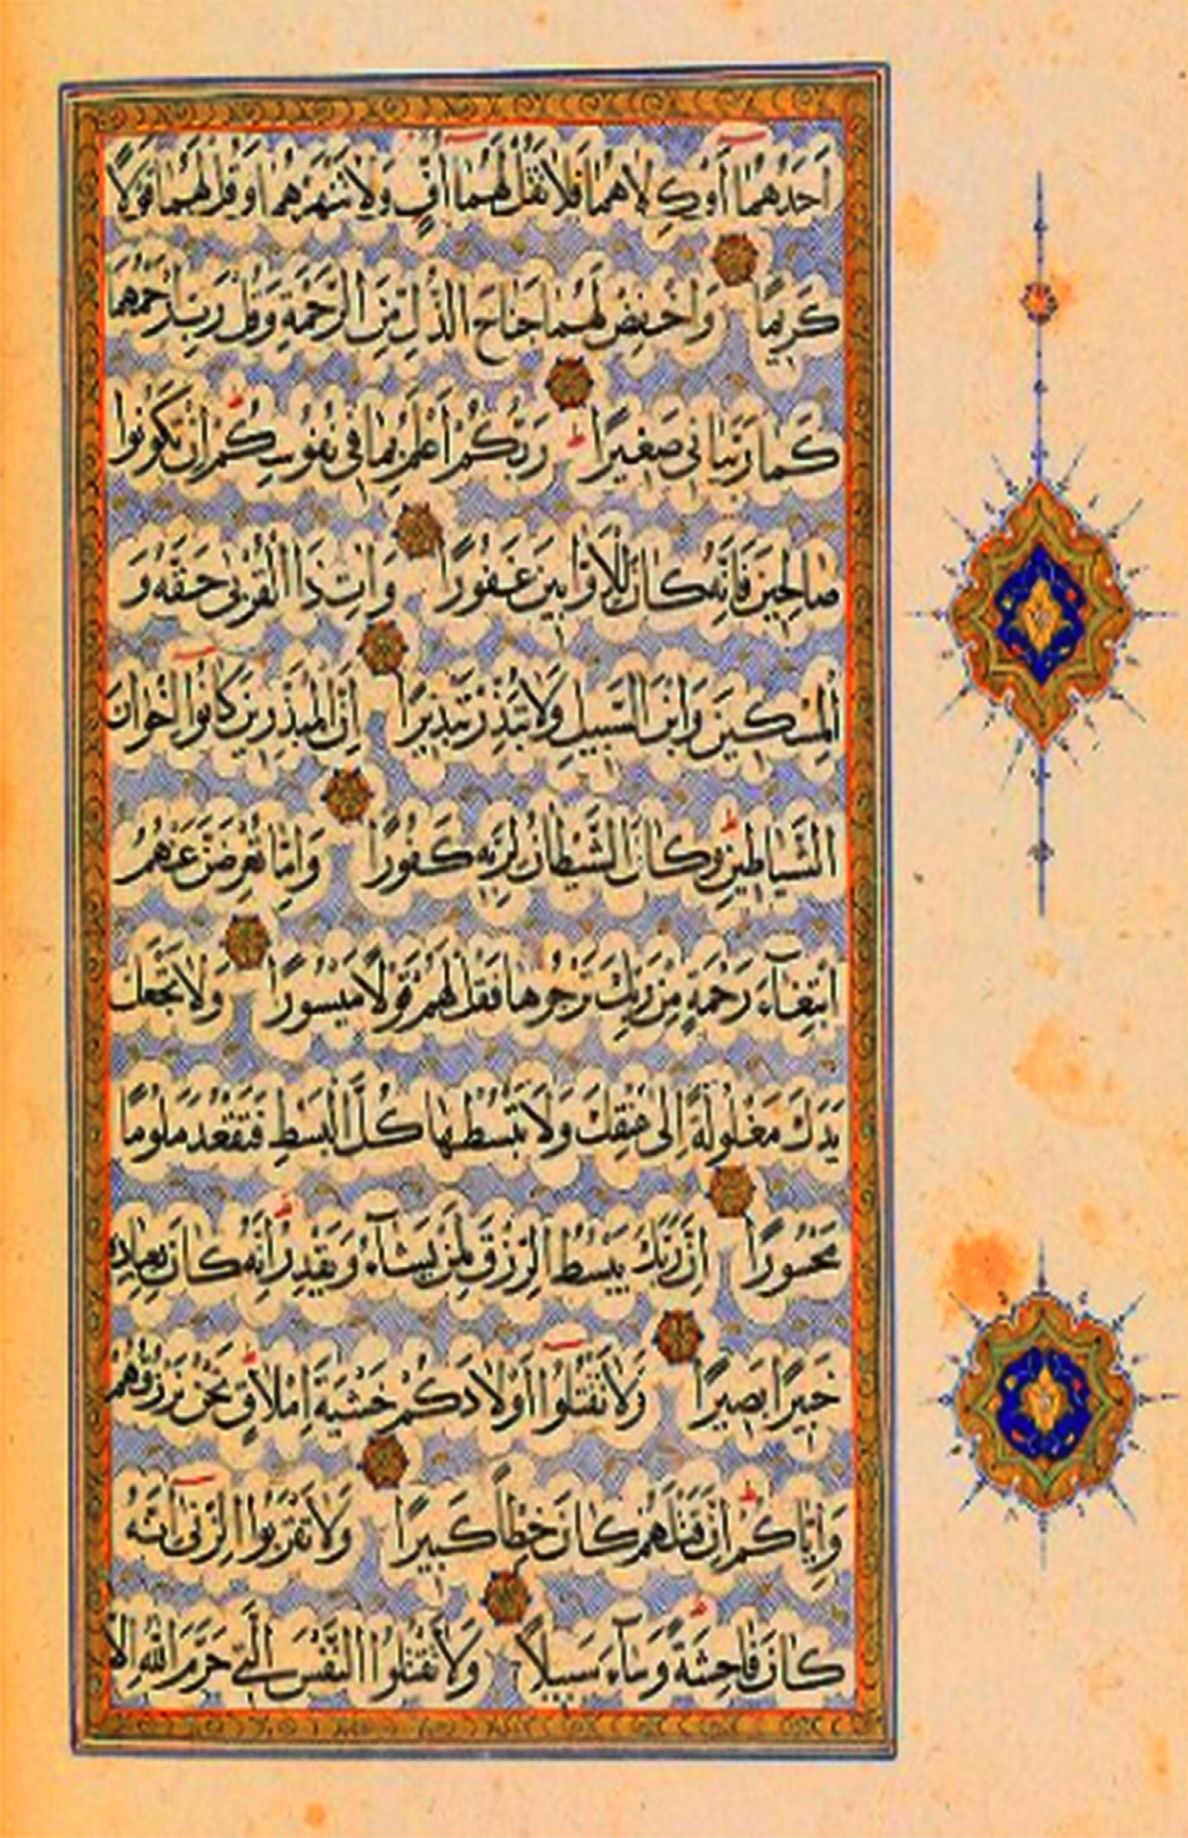 اَحَدُهُمَآ اَوْ كِلَاهُمَا فَلَا تَقُلْ لَهُمَآ اُفٍّ وَلَا تَنْهَرْهُمَا وَقُلْ لَهُمَا قَوْلًا
كَرِيمًا وَاخْفِضْ لَهُمَا جَنَاحَ الذُّلِّ مِنَ الرَّحْمَةِ وَقُلْ رَبِّ ارْحَمْهُمَا
كَمَا رَبَّيَانِي صَغِيرًا رَبُّكُمْ اَعْلَمُ بِمَا فِي نُفُوسِكُمْ اِنْ تَكُونُوا
صَالِحِينَ فَاِنَّهُ كَانَ لِلْاَوَّابِينَ غَفُورًا وَاٰتِ ذَا الْقُرْبٰى حَقَّهُ وَ
الْمِسْكِينَ وَابْنَ السَّبِيلِ وَلَا تُبَذِّرْ تَبْذِيرًا اِنَّ الْمُبَذِّرِينَ كَانُوٓا اِخْوَانَ
الشَّيَاطِينِ وَكَانَ الشَّيْطَانُ لِرَبِّهِ كَفُورًا وَاِمَّا تُعْرِضَنَّ عَنْهُمُ
ابْتِغَآءَ رَحْمَةٍ مِنْ رَبِّكَ تَرْجُوهَا فَقُلْ لَهُمْ قَوْلًا مَيْسُورًا وَلَا تَجْعَلْ
يَدَكَ مَغْلُولَةً اِلٰى عُنُقِكَ وَلَا تَبْسُطْهَا كُلَّ الْبَسْطِ فَتَقْعُدَ مَلُومًا
مَحْسُورًا اِنَّ رَبَّكَ يَبْسُطُ الرِّزْقَ لِمَنْ يَشَآءُ وَيَقْدِرُ اِنَّهُ كَانَ بِعِبَادِهِ
خَبِيرًا بَصِيرًا وَلَا تَقْتُلُوٓا اَوْلَادَكُمْ خَشْيَةَ اِمْلَاقٍ نَحْنُ نَرْزُقُهُمْ
وَاِيَّاكُمْ اِنَّ قَتْلَهُمْ كَانَ خِطْاً كَبِيرًا وَلَا تَقْرَبُوا الزِّنٰىٓ اِنَّهُ
كَانَ فَاحِشَةً وَسَآءَ سَبِيلًا وَلَا تَقْتُلُوا النَّفْسَ الَّتِي حَرَّمَ اللّٰهُ اِلَّا